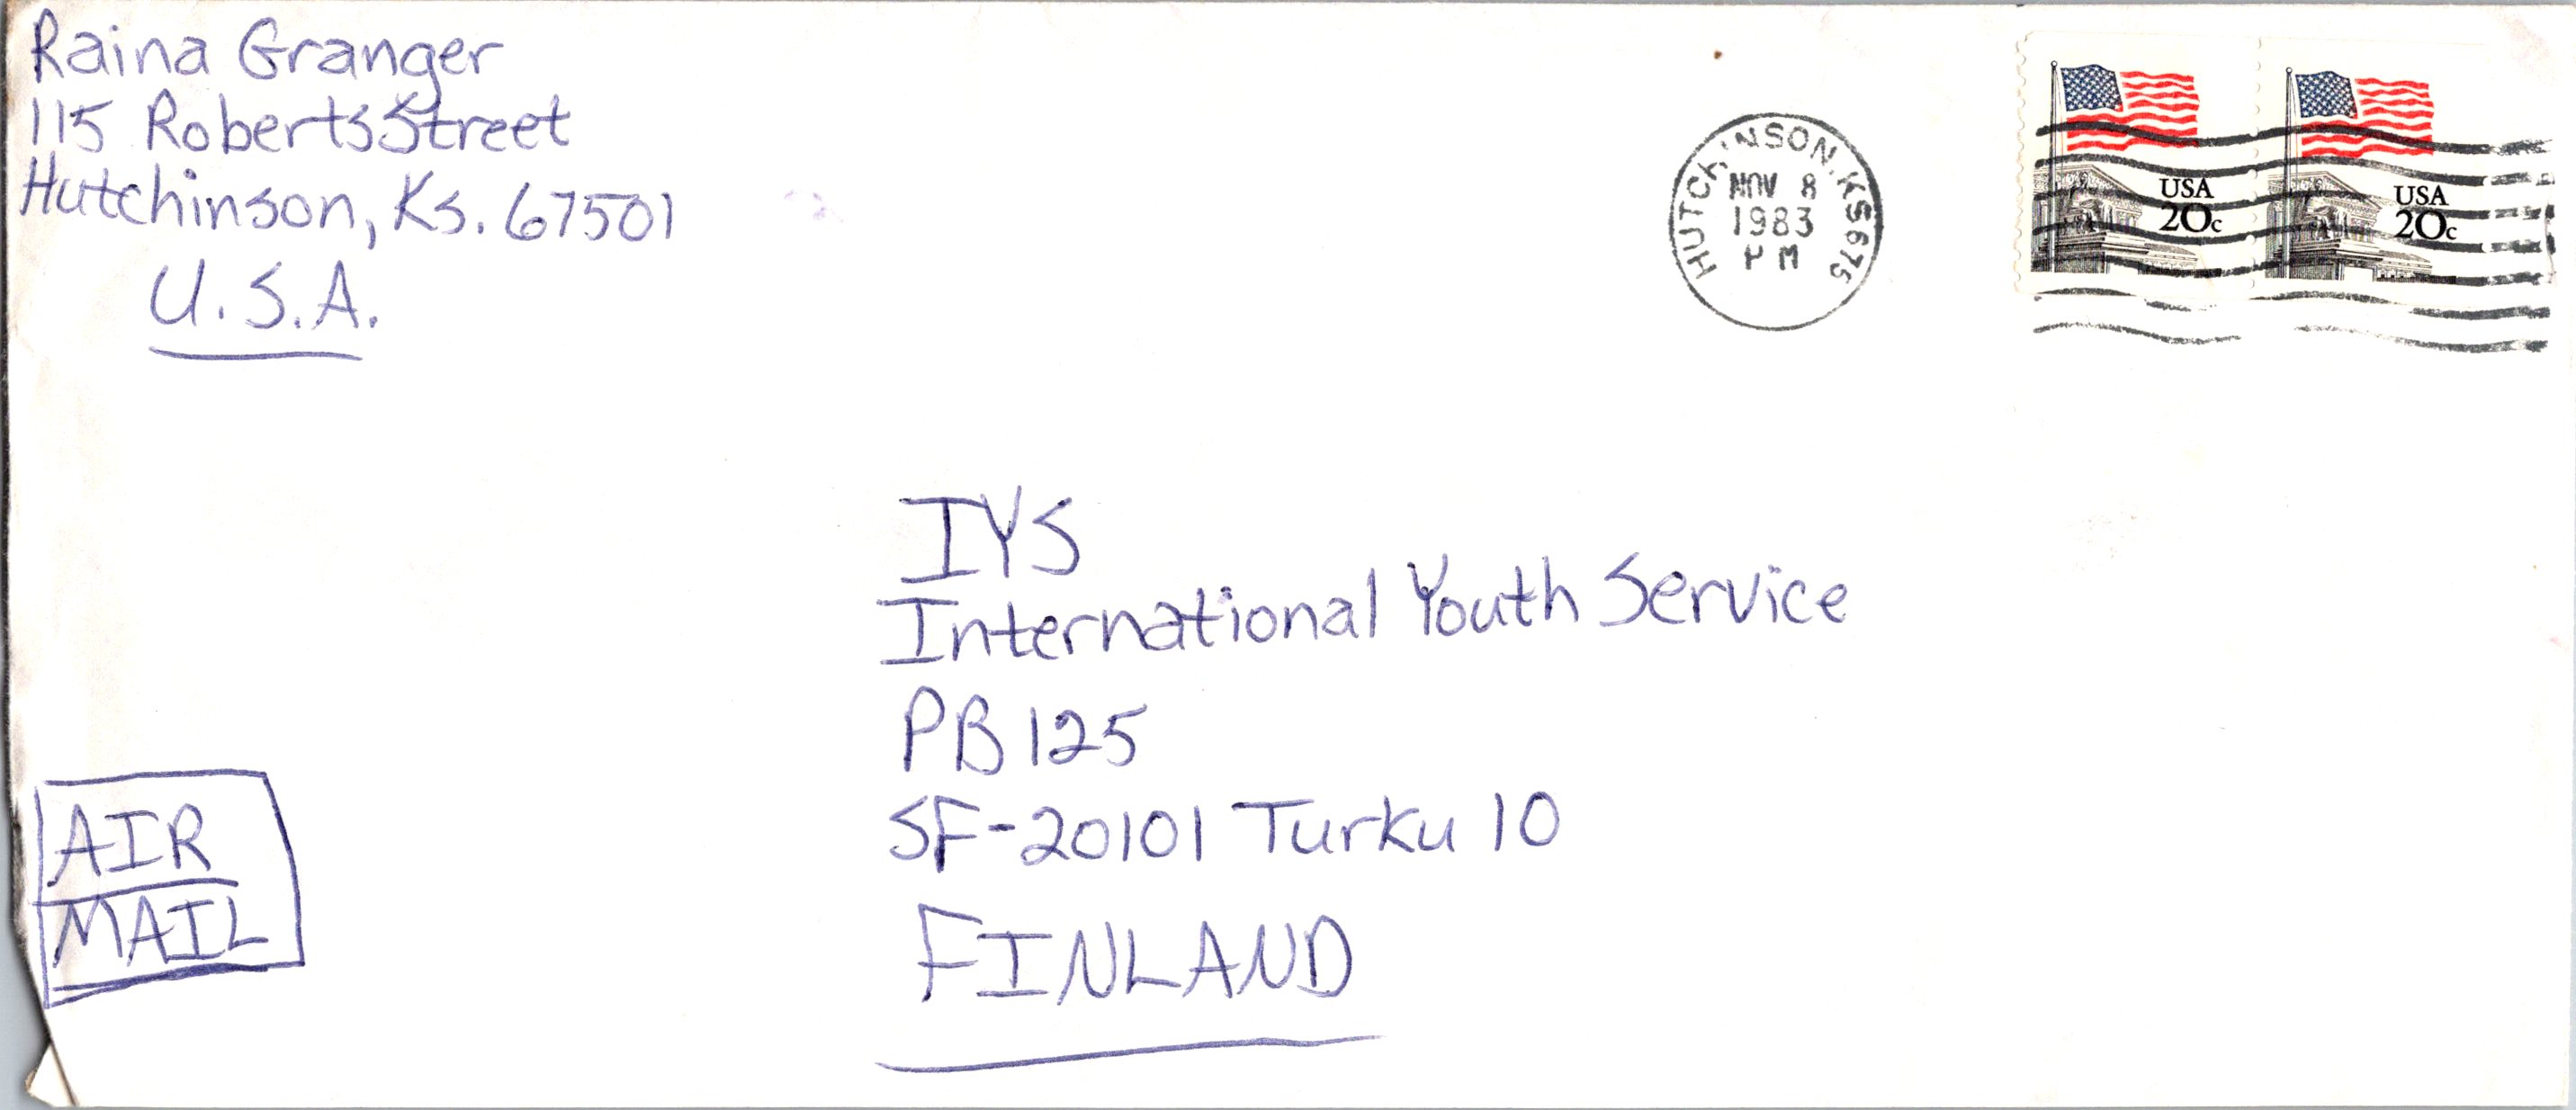 Raina Granger
115 Roberts Street
Hutchinson, Ks. 67501
U.S.A.
HUTCHINSON, KS 675
NOV 8
1983
PM
USA
20c
USA
20c
IYS
International Youth Service
PB 125
SF-20101 Turku 10
FINLAND
AIR
MAIL